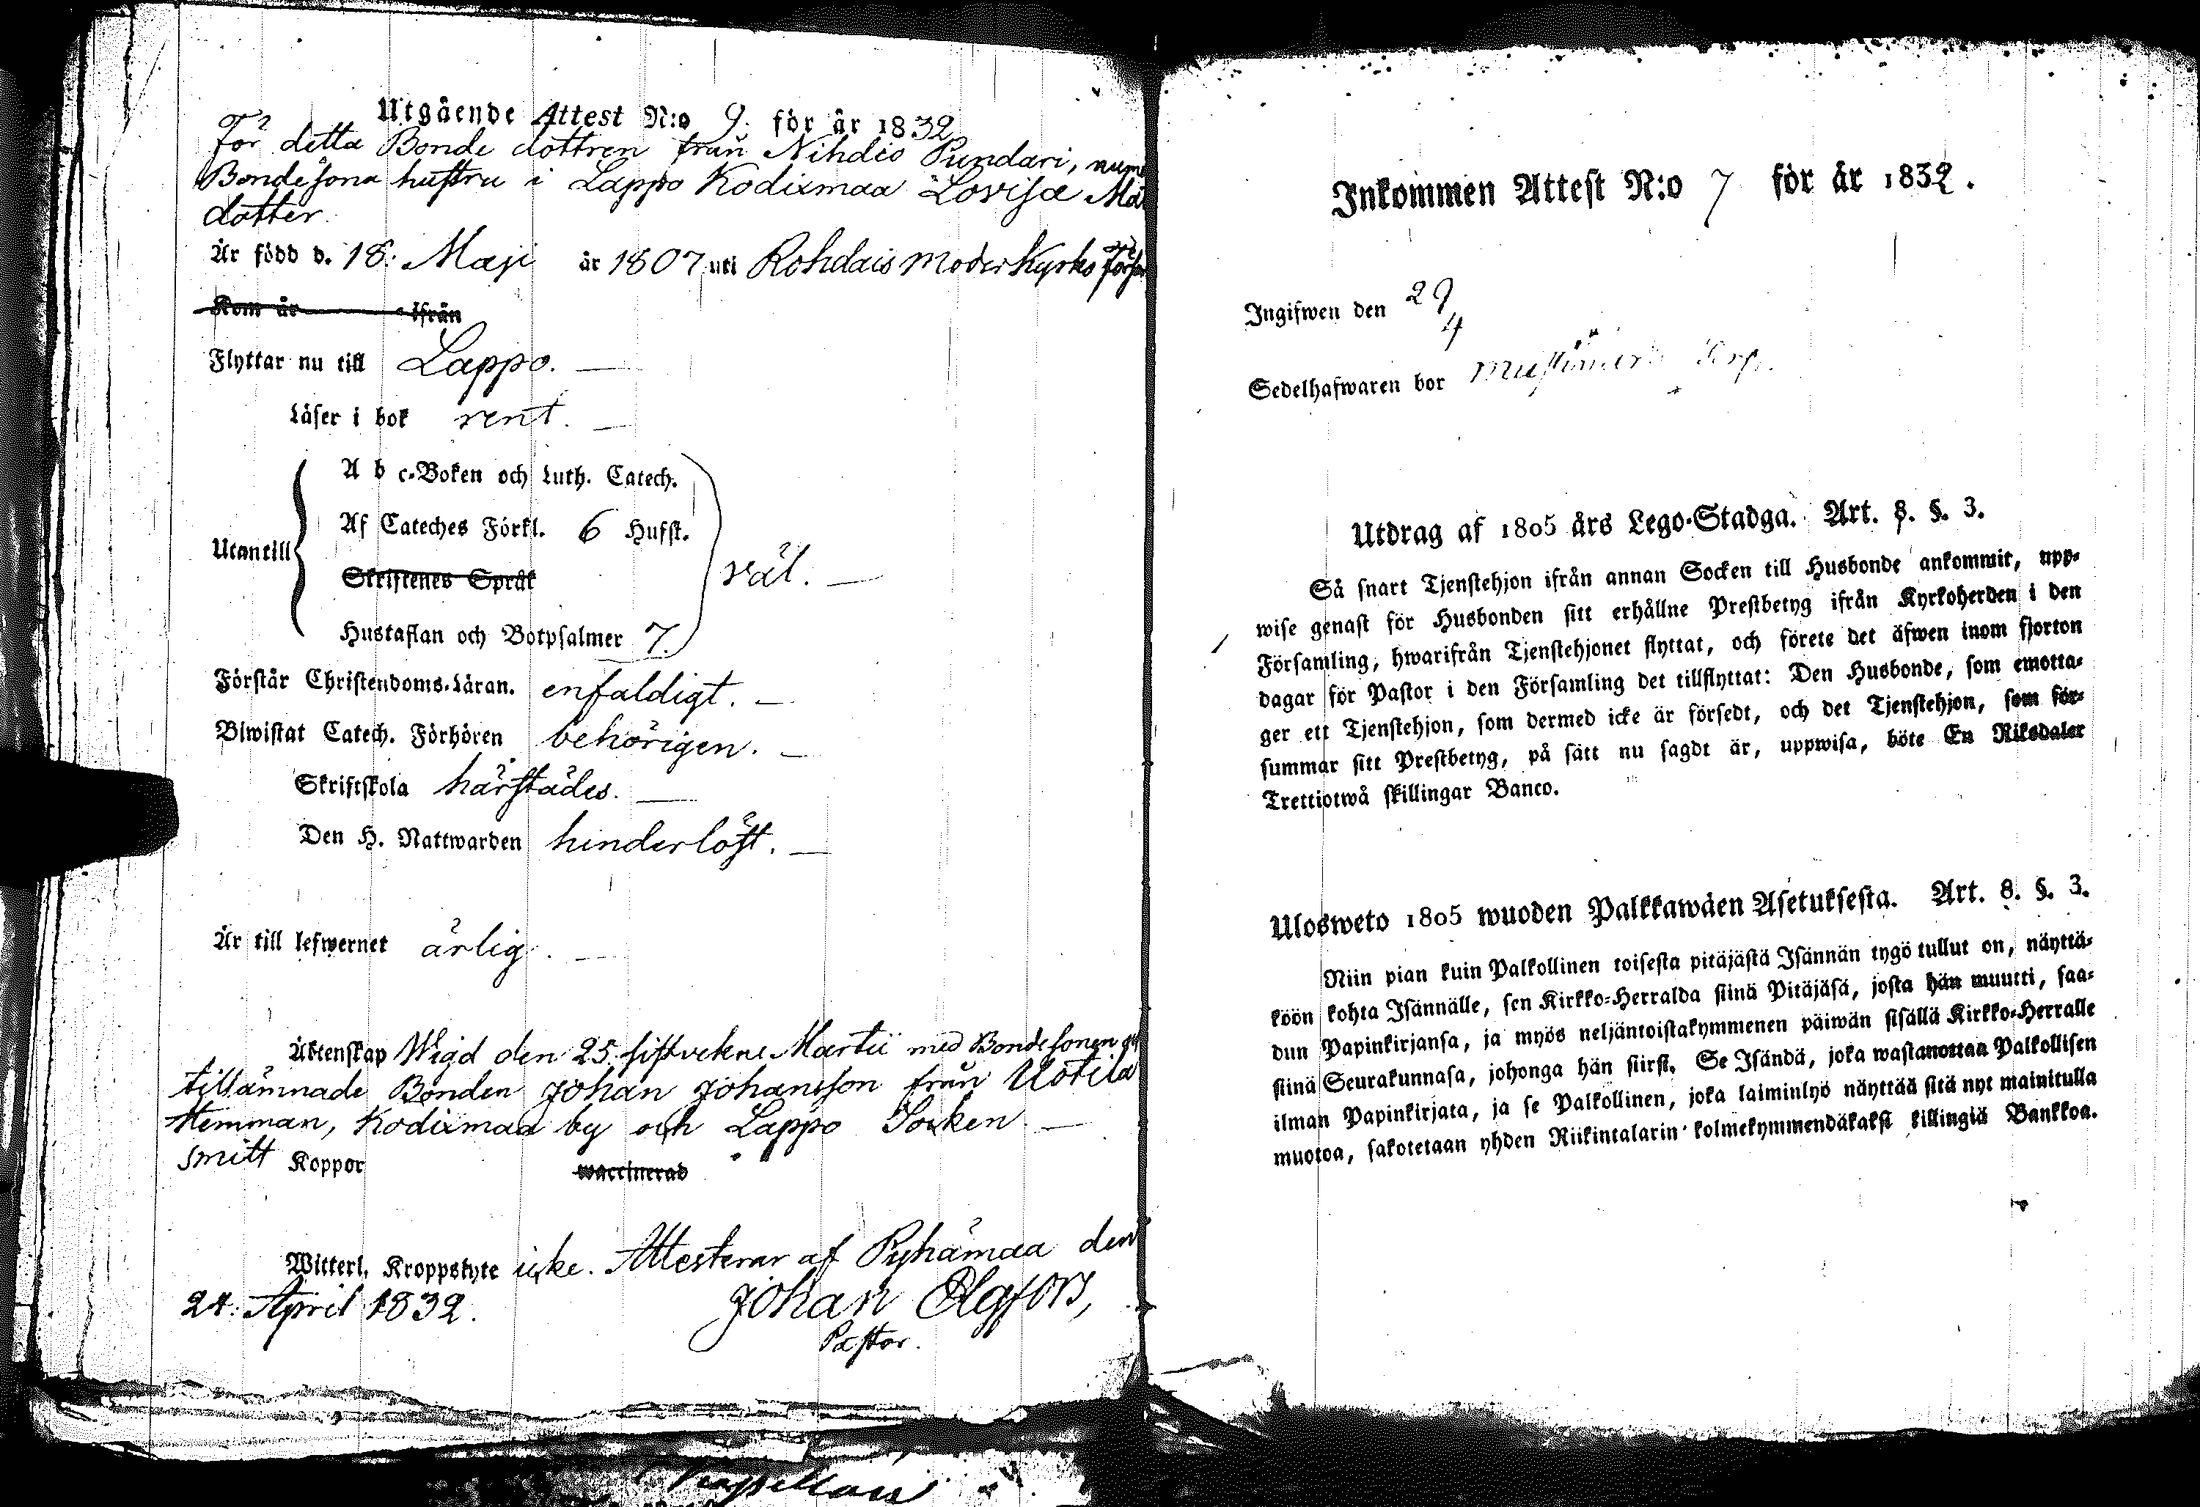 Utgående Attest N:o 9. för år 1832
För detta Bonde dottren från Nihdiö Pundari,
Bondesona hustru i Lappo Kodixmaa Lovisa
dotter.
Är född d. 18. Maji år 1807 uti Rohdais moder Kyrko
Kom år ifrån
Flyttar nu till Lappo.
Läser i bok rent.
Utantill
A b c-Boken och Luth. Catech.
Af Cateches Förkl. 6 Hufst.
Skriftenes Språk
Hustaflan och Botpsalmer 7.
väl.
Förstår Christendoms-Läran. enfaldigt.
Biwistat Catech. Förhören behörigen.
Skriftskola härstädes.
Den H. Nattwarden hinderlöst.
Är till lefwernet ärlig.
Äktenskap Wigd den 25. sistvekne Martii med Bondesonen
tillämnade Bonden Johan Johansson från Uotila
Hemman, Kodixmaa by och Lappo Socken
smitt Koppor waccinerad
Witterl. Kroppslyte icke. Attesterar af Pyhämaa den
24. April 1832. Johan Elgfors,
Pastor.
Inkommen Attest N:o 7 för år 1832.
Ingifwen den 29/4
Sedelhafwaren bor
Utdrag af 1805 års Lego-Stadga. Art. 8. §. 3.
Så snart Tjenstehjon ifrån annan Socken till Husbonde ankommit, upp-
wise genast för Husbonden sitt erhållne Prestbetyg ifrån Kyrkoherden i den
Församling, hwarifrån Tjenstehjonet flyttat, och förete det äfwen inom fjorton
dagar för Pastor i den Församling det tillflyttat: Den Husbonde, som emotta-
ger ett Tjenstehjon, som dermed icke är försedt, och det Tjenstehjon, som för-
summar sitt Prestbetyg, på sätt nu sagdt är, uppwisa, böte En Riksdaler
Trettiotwå skillingar Banco.
Ulosweto 1805 wuoden Palkkawäen Asetuksesta. Art. 8. §. 3.
Niin pian kuin Palkollinen toisesta pitäjästä Isännän tygö tullut on, näyttä-
köön kohta Isännälle, sen Kirkko-Herralda siinä Pitäjäsä, josta hän muutti, saa-
dun Papinkirjansa, ja myös neljäntoistakymmenen päiwän sisällä Kirkko-Herralle
siinä Seurakunnasa, johonga hän siirsi. Se Isändä, joka wastanottaa Palkollisen
ilman Papinkirjata, ja se Palkollinen, joka laiminlyö näyttää sitä nyt mainitulla
muotoa, sakotetaan yhden Riikintalarin kolmekymmendäkaksi killingiä Bankkoa.